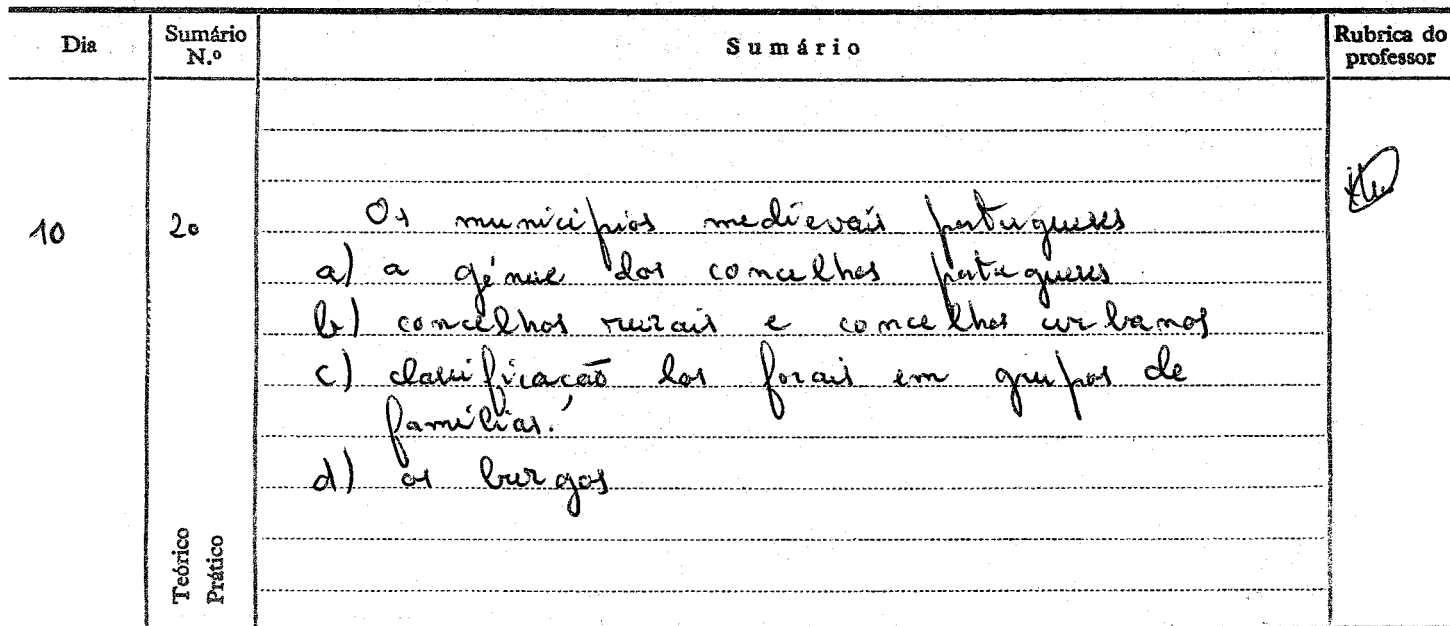 Dia
Sumário N.º
Sumário
Rubrica do professor
10
20
Os municípios medievais portugueses
a) a génese dos concelhos portugueses
b) concelhos rurais e concelhos urbanos
c) classificação dos forais em grupos de
famílias.
d) os burgos
Teórico
Prático